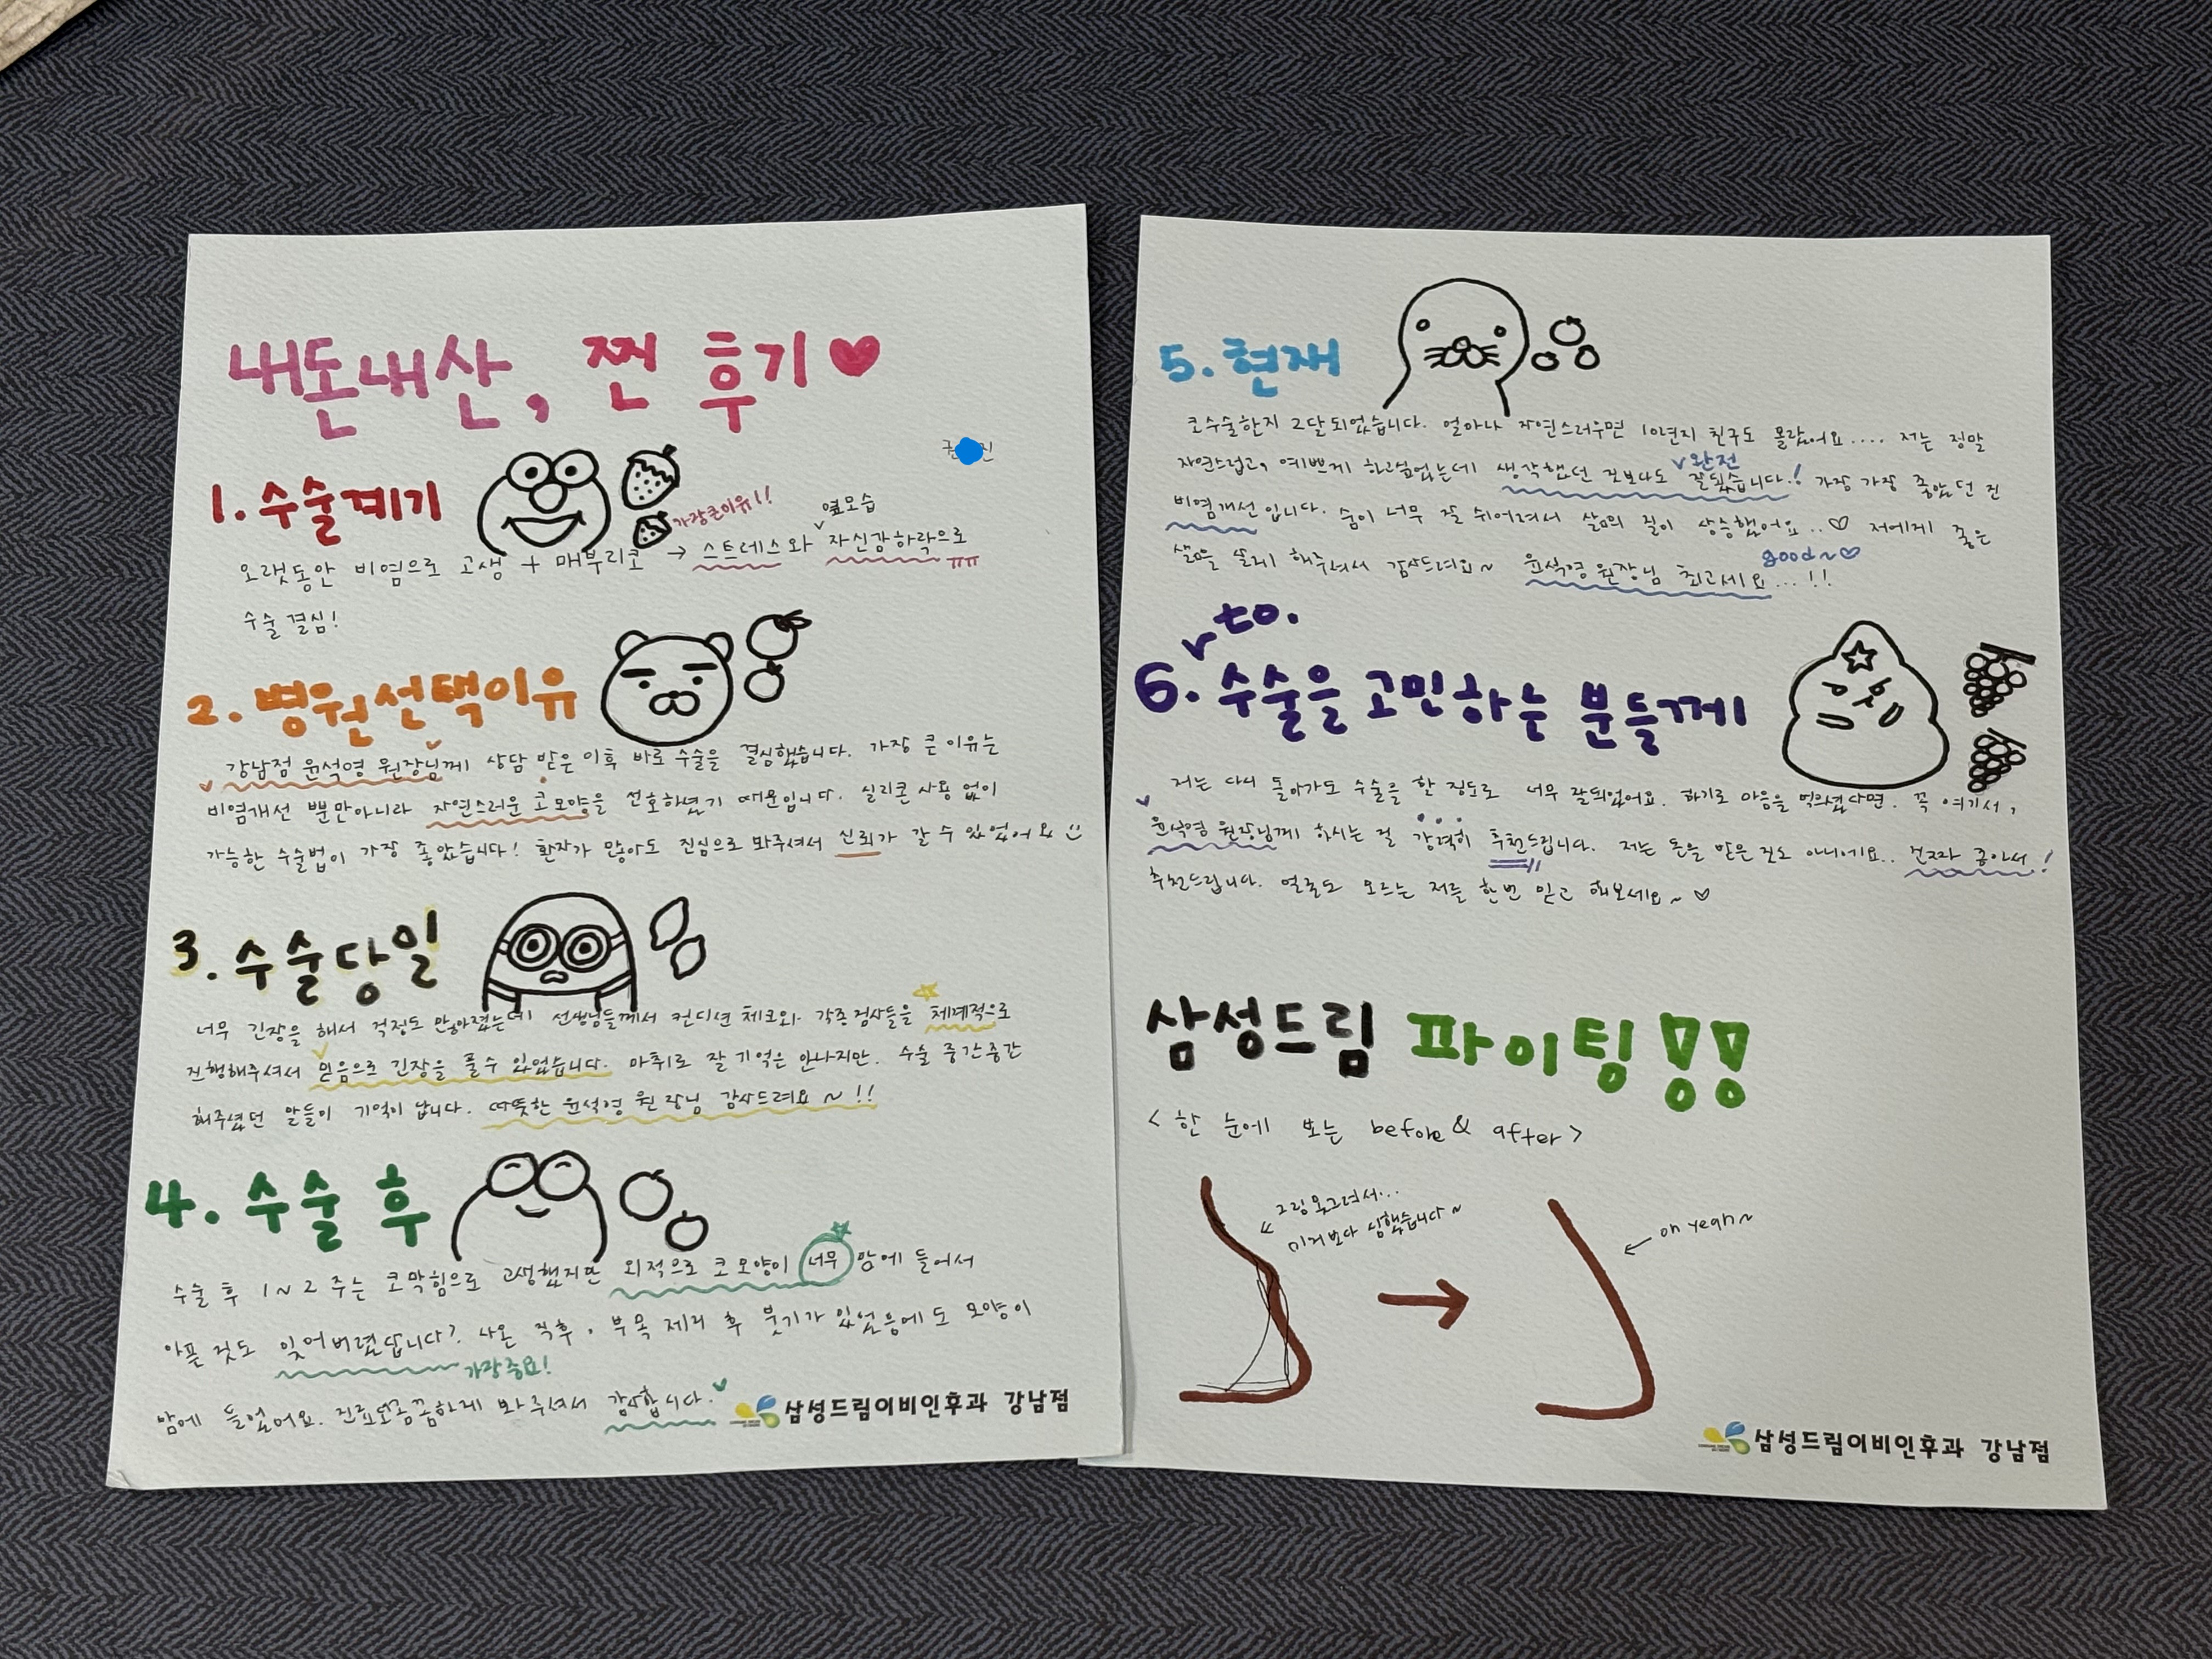 내돈내산, 찐 후기♥
1. 수술계기
가장큰이유!!
옆모습
오랫동안 비염으로 고생 + 매부리코 → 스트레스와 자신감하락으로
ㅠㅠ
수술 결심!
2. 병원선택이유
강남점 윤석영 원장님께 상담 받은 이후 바로 수술을 결심했습니다. 가장 큰 이유는
비염개선 뿐만아니라 자연스러운 코모양을 선호하셨기 때문입니다. 실리콘 사용 없이
가능한 수술법이 가장 좋았습니다! 환자가 많아도 진심으로 봐주셔서 신뢰가 갈 수 있었어요
3. 수술당일
너무 긴장을 해서 걱정도 많아졌는데 선생님들께서 컨디션 체크와 각종검사들을 체계적으로
진행해주셔서 믿음으로 긴장을 풀수 있었습니다. 마취로 잘 기억은 안나지만. 수술 중간중간
해주셨던 말들이 기억이 납니다. 따뜻한 윤석영 원장님 감사드려요~!!
4. 수술 후
수술 후 1~2 주는 코막힘으로 고생했지만 외적으로 코모양이 너무 맘에 들어서
아픈 것도 잊어버렸답니다? 사온 직후, 부목 제거 후 붓기가 있었음에도 모양이
가장중요!
맘에 들었어요. 진료도꼼꼼하게 봐주셔서 감사합니다.
삼성드림이비인후과 강남점
5. 현재
코수술한지 2달되었습니다. 얼마나 자연스러우면 10년지 친구도 몰랐어요.... 저는 정말
완전
자연스럽고, 예쁘게 하고싶었는데 생각했던 것보다도 잘됐습니다.! 가장 가장 좋았던 건
비염개선입니다. 숨이 너무 잘 쉬어려서 삶의 질이 상승했어요..♡ 저에게 좋은
good~♡
삶을 살게 해주셔서 감사드려요~ 윤석영원장님 최고세요...!!
to.
6. 수술을 고민하는 분들께
저는 다시 돌아가도 수술을 할 정도로 너무 잘되었어요. 하기로 마음을 먹으셨다면. 꼭 여기서,
윤석영 원장님께 하시는 걸 강력히 추천드립니다. 저는 돈을 받은것도 아니에요.. 진짜 좋아서!
추천드립니다. 얼굴도 모르는 저를 한번 믿고 해보세요~♡
삼성드림 파이팅!!
<한 눈에 보는 before & after>
그림 못그려서...
이거보다 심했습니다~
oh yeah~
삼성드림이비인후과 강남점